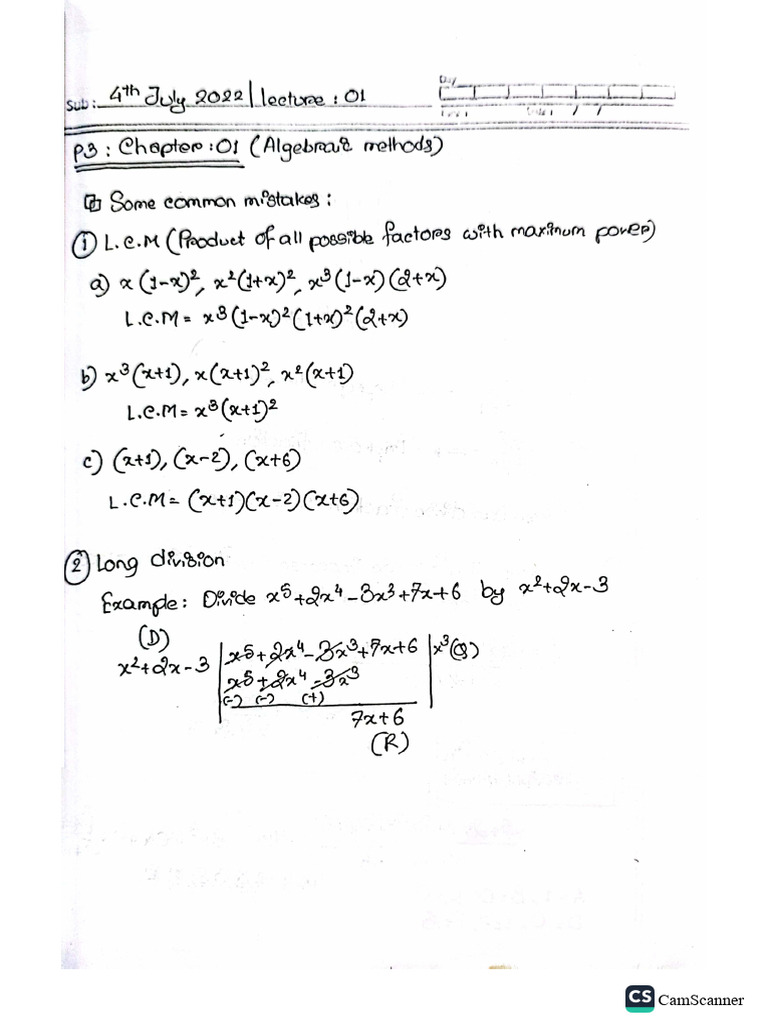 Sub: 4th July 2022 | lecture : 01
Day
Time : Date : / /
P3 : Chapter : 01 (Algebraic methods)
Some common mistakes :
① L.C.M (Product of all possible factors with maximum power)
a) x(1-x)², x²(1+x)², x³(1-x)(2+x)
L.C.M = x³(1-x)²(1+x)²(2+x)
b) x³(x+1), x(x+1)², x²(x+1)
L.C.M = x³(x+1)²
c) (x+1), (x-2), (x+6)
L.C.M = (x+1)(x-2)(x+6)
② Long division
Example: Divide x⁵+2x⁴-3x³+7x+6 by x²+2x-3
(D)
x²+2x-3 | x⁵+2x⁴-3x³+7x+6 | x³(Q)
x⁵+2x⁴-3x³
(-) (-) (+)
7x+6
(R)
CS CamScanner